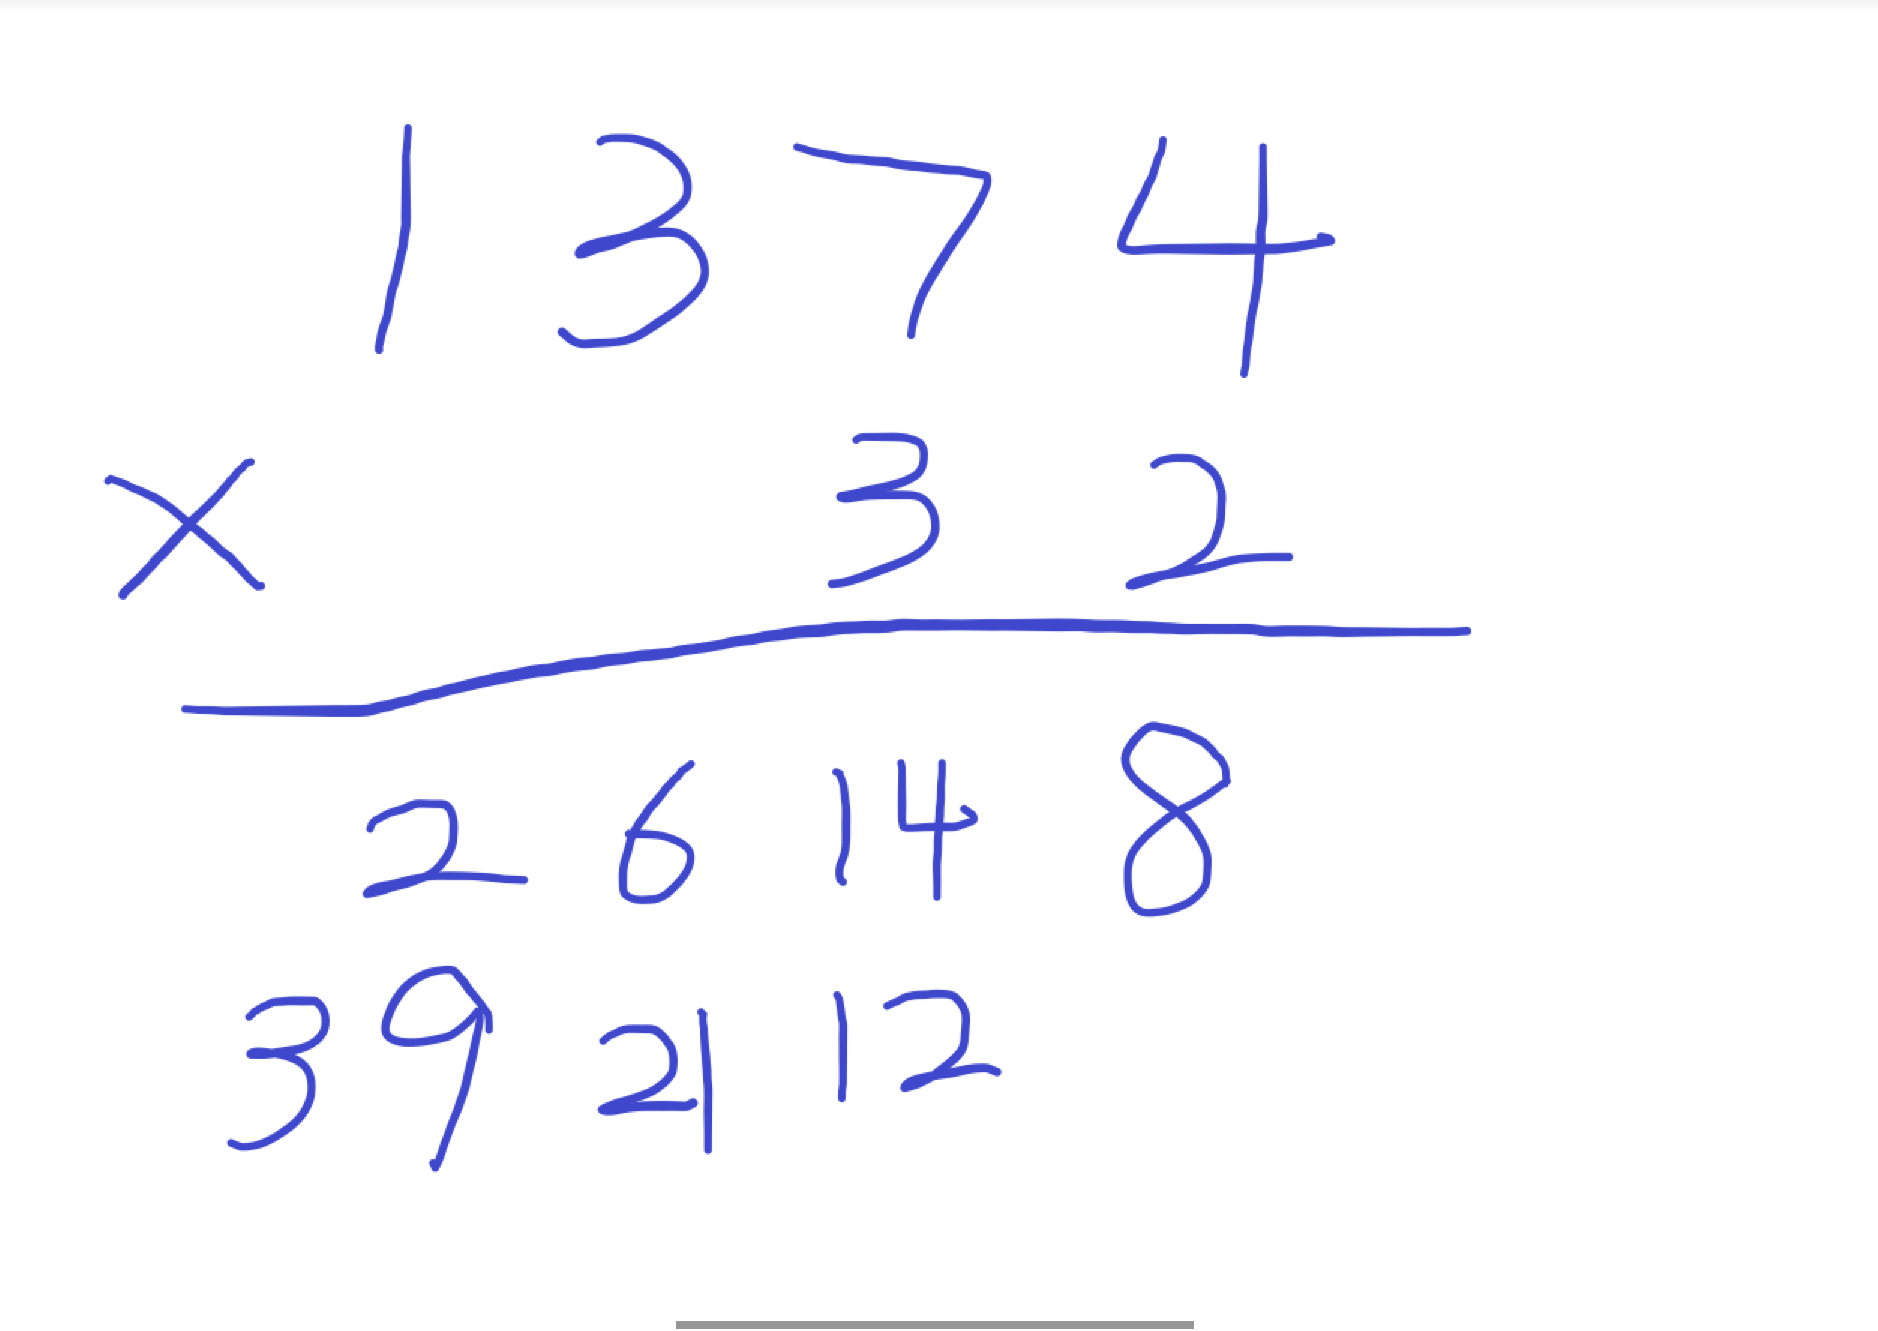 1 3 7 4
× 3 2
2 6 14 8
3 9 21 12